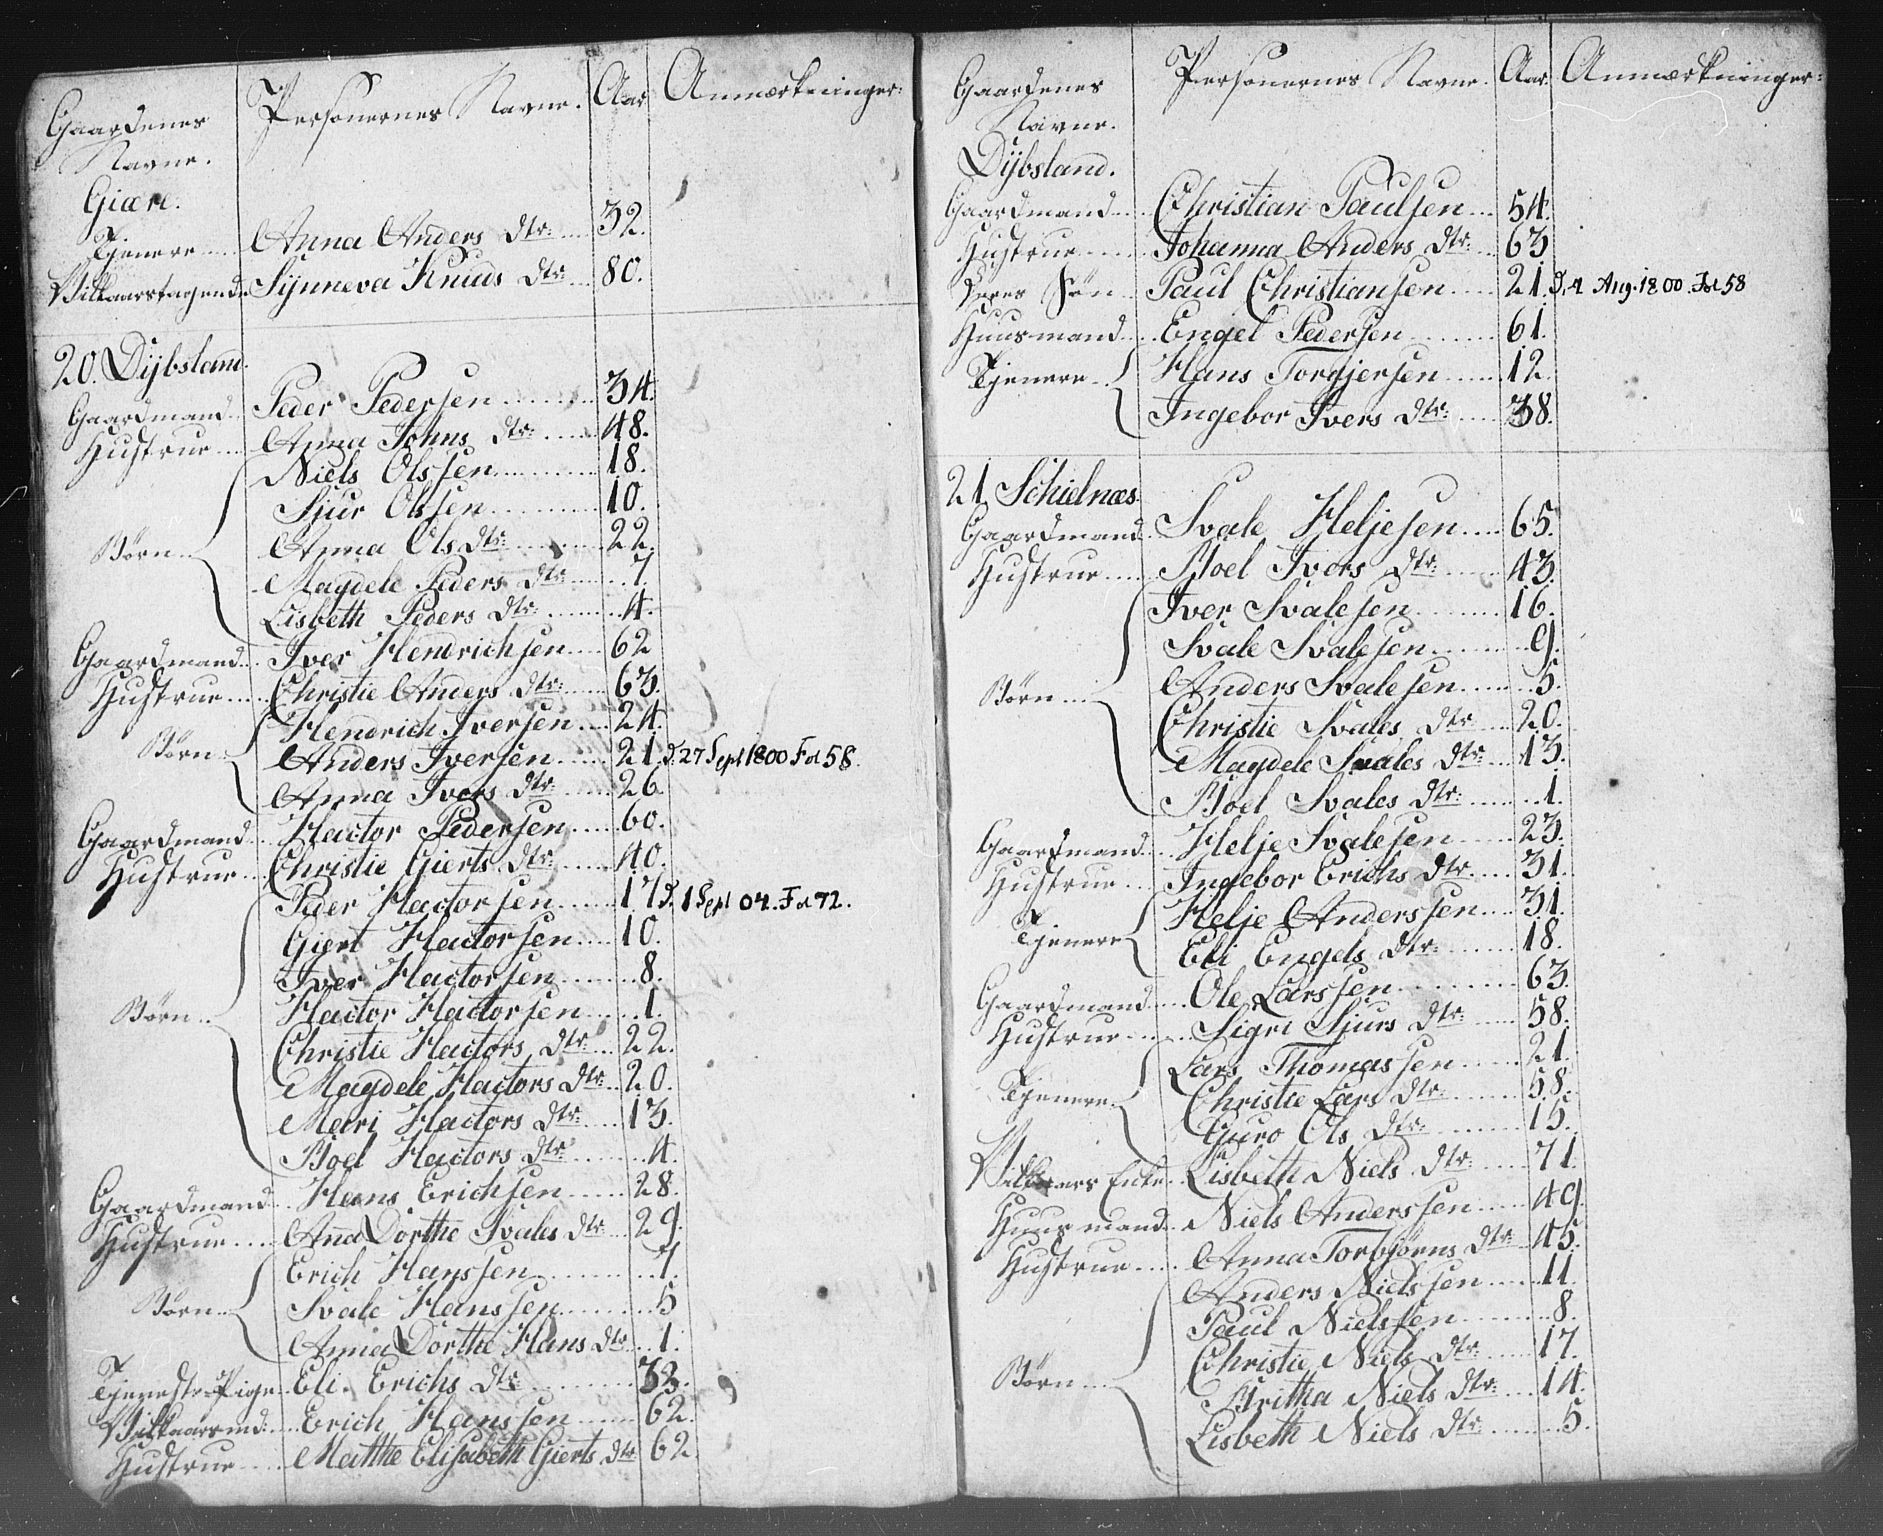 Gaardenes Navne. Personernes Navne. Aar Anmærkninger:
Giære.
Tjenere Anna Anders Dtr: 32.
Vilkaarstagende Synneva Knuds Dtr: 80.
20. Dÿbsland.
Gaardmand Peder Pedersen 34.
Hustrue Anna Johns Dtr: 48.
Niels Olssen 18.
Sjur Olssen 10.
Børn Anna Ols Dtr: 22.
Magdele Peders Dtr: 7.
Lisbeth Peders Dtr: 4.
Gaardmand Iver Hendrichsen 62
Hustrue Christie Anders Dtr: 63.
Hendrich Iversen 24.
Børn Anders Iversen 21. D. 27 Sept 1800 Fol 58.
Anna Ivers Dtr: 26
Gaardmand Hactor Pedersen 60.
Hustrue Christie Gierts Dtr: 40.
Peder Hactorsen 17. D. 1 Sept 04. Fol 72.
Giert Hactorsen 10.
Iver Hactorsen 8.
Børn Hactor Hactorsen 1.
Christie Hactors Dtr: 22.
Magdele Hactors Dtr: 20.
Mari Hactors Dtr: 13.
Boel Hactors Dtr: 4.
Gaardmand Hans Erichsen 28.
Hustrue Anna Dorthe Svales Dtr 29.
Erich Hanssen 7.
Børn Svale Hanssen 5
Anna Dorthe Hans Dtr. 1.
Tjeneste Pige Eli Erichs Dtr 33.
Vilkaarsmd: Erich Hanssen 62.
Hustrue Matthe Elisabeth Gierts Dtr 62.
Gaardenes Navne. Personernes Navne. Aar. Anmærkninger:
Dÿbsland.
Gaardmand Christian Paulsen 54.
Hustrue Johanna Anders Dtr: 63
Deres Søn Paul Christiansen 21. D. 4 Aug. 1800. Fol 58
Huusmand Engel Pedersen 61.
Tjenere Hans Torgjersen 12.
Ingebor Ivers Dtr: 38.
21. Schielnæs.
Gaardmand Svale Heljesen 65.
Hustrue Boel Ivers Dtr: 43.
Iver Svalesen 16.
Svale Svalesen 9.
Børn Anders Svalesen 5.
Christie Svales Dtr 20.
Magdele Svales Dtr: 13.
Boel Svales Dtr: 1.
Gaardmand Helje Svalesen 23.
Hustrue Ingebor Erichs Dtr. 31.
Tjenere Helje Anderssen 31.
Eli Engels Dtr: 18.
Gaardmand Ole Larssen 63.
Hustrue Sigri Sjurs Dtr: 58.
Lars Thomassen 21.
Tjenere Christie Lars Dtr: 58.
Guro Ols Dtr: 15.
Vilkaars Enke Lisbeth Niels Dtr: 71.
Huusmand Niels Anderssen 49.
Hustrue Anna Torbjørns Dtr: 45.
Anders Nielssen 11.
Paul Nielssen 8.
Christie Niels Dtr: 17.
Børn Britha Niels Dtr: 14.
Lisbeth Niels Dtr: 5.